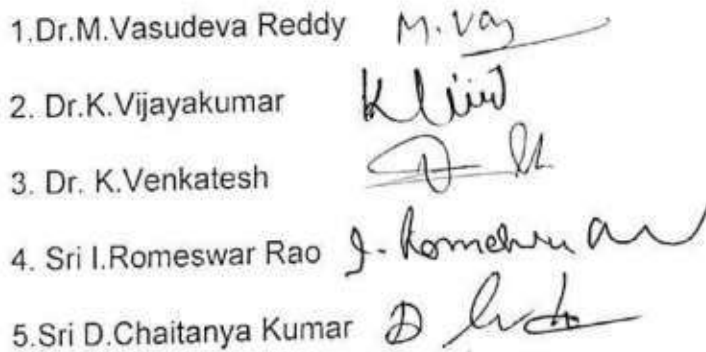 1.Dr.M.Vasudeva Reddy M. Vas
2. Dr.K.Vijayakumar
3. Dr. K.Venkatesh
4. Sri I.Romeswar Rao
5.Sri D.Chaitanya Kumar D